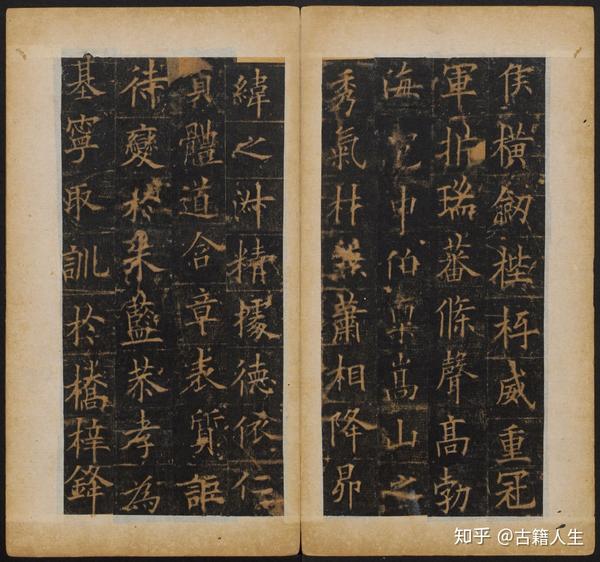 侯橫劒梐枑威重冠
軍析瑞蕃條聲高勃
海申伯稟嵩山之
秀氣材蕭相降昴
緯之淑精據德依仁
貞體道含章表質詎
待變於朱藍恭孝為
基寧取訓於橋梓鋒
知乎 @古籍人生